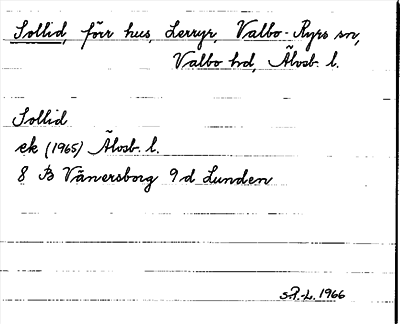 Sollid, förr hus, Lerryr, Valbo-Ryrs sn,
Valbo hd, Älvsb. l.
Sollid
ek (1965) Älvsb. l.
8 B Vänersborg 9 d Lunden
S.P.-L. 1966